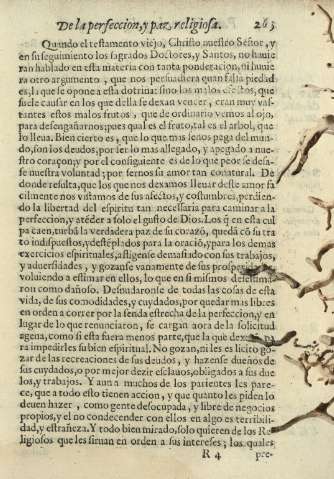 De la perfeccion, y paz religiosa. 263
Quando el testamento viejo, Christo nuestro Señor, y
en su seguimiento los sagrados Doctores, y Santos, no huuie
ran hablado en esta materia con tanta ponderacion, ni huuie
ra otro argumento, que nos persuadiera quan falsa piedad
es, la que se opone a esta dotrina: sino los malos efectos, que
suele causar en los que della se dexan vencer, eran muy vas-
tantes estos malos frutos, que de ordinario vemos al ojo,
para desengañarnos; pues qual es el fruto, tal es el arbol, que
lo lleua. Bien cierto es, que lo que mas lexos pega del mun-
do, son los deudos, por ser lo mas allegado, y apegado a nue-
stro coraçon; y por el consiguiente es de lo que peor se desa-
se nuestra voluntad; por sernos su amor tan conatural. De
donde resulta, que los que nos dexamos lleuar deste amor fa
cilmente nos vistamos de sus afectos, y costumbres, perdien-
do la libertad del espiritu tan necessaria para caminar a la
perfeccion, y atēder a solo el gusto de Dios. Los q̄ en esta cul
pa caen, turbā la verdadera paz de su coraçō, quedā cō su tra
to indispuestos, y destēplados para la oraciō, y para los demas
exercicios espirituales, afligense demasiado con sus trabajos,
y aduersidades, y gozanse vanamente de sus prosperidades,
voluiendo a estimar en ellos, lo que en si mismos desestima-
ron como dañoso. Desnudaronse de todas las cosas de esta
vida, de sus comodidades, y cuydados, por quedar mas libres
en orden a correr por la senda estrecha de la perfeccion, y en
lugar de lo que renunciaron, se cargan aora de la solicitud
agena, como si esta fuera menos parte, que la que dexaron pa
ra impedirles su bien espiritual. No gozan, ni les es licito go-
zar de las recreaciones de sus deudos, y hazense dueños de
sus cuydados, o por mejor dezir esclauos, obligados a sus due
los, y trabajos. Y aun a muchos de los parientes les pare-
ce, que a todo esto tienen accion, y que quanto les piden lo
deuen hazer, como gente desocupada, y libre de negocios
propios, y el no condecender con ellos en algo es terribili-
dad, y estrañeza. Y todo bien mirado, solo quieren de los Re
ligiosos que les siruan en orden a sus intereses; los quales
R 4 pre-